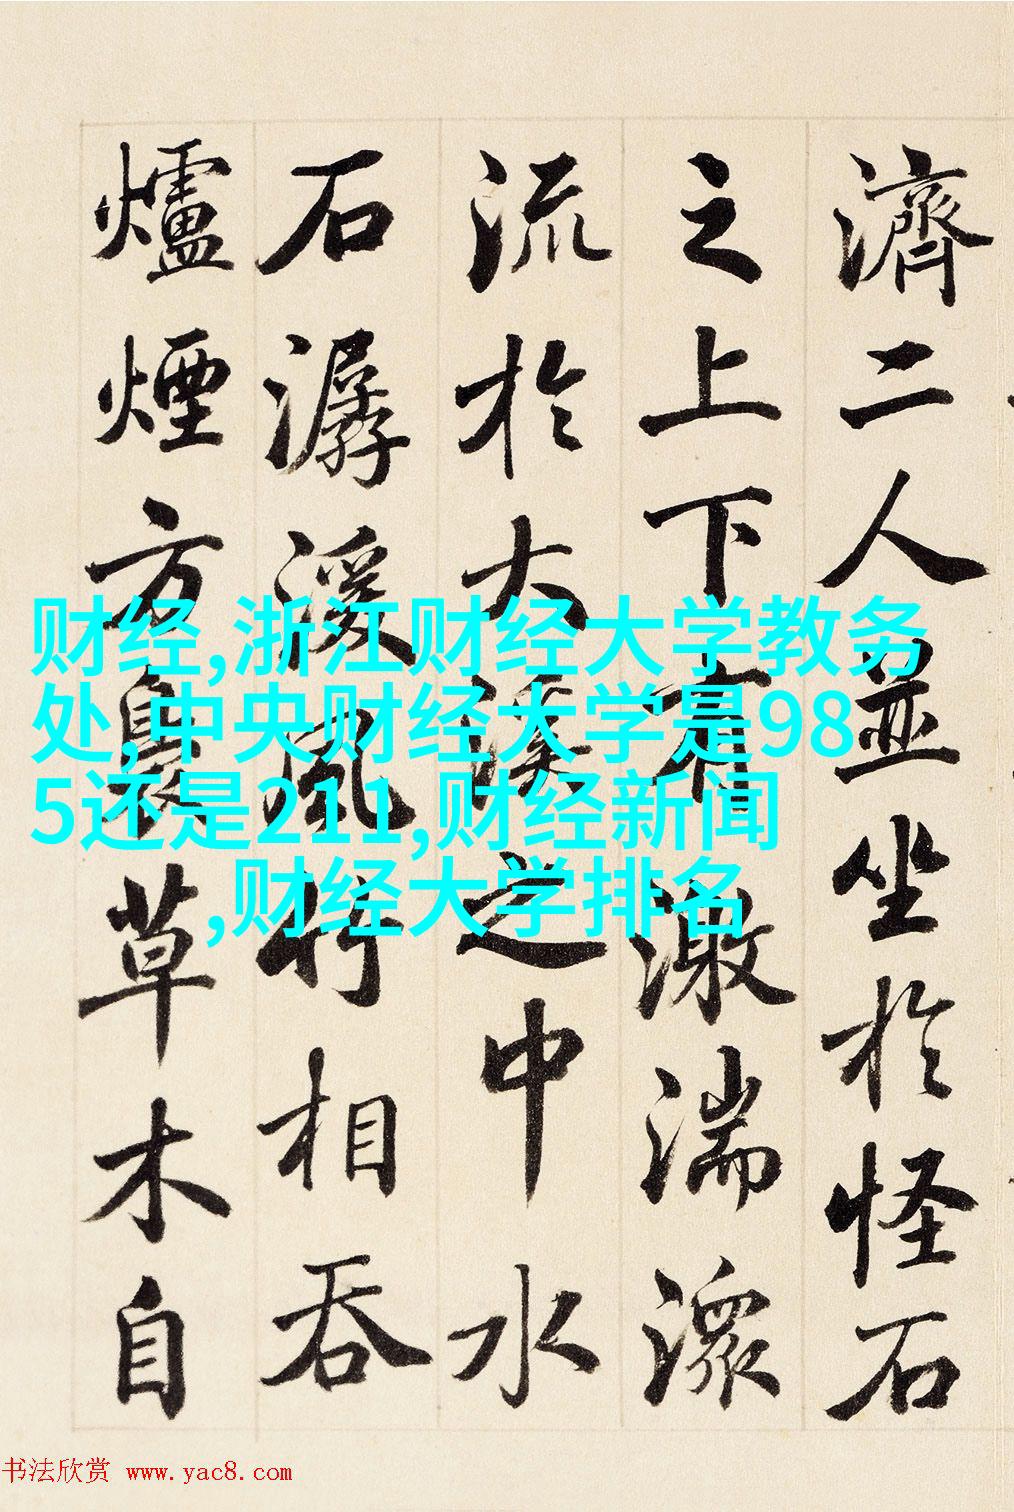 濟二人並坐於怪石
之上下有激湍潀
流於大溪之中水
石潺湲風竹相吞
爐煙方裊草木自
财经,浙江财经大学教务
处,中央财经大学是98
5还是211,财经新闻
,财经大学排名
书法欣赏 www.yac8.com